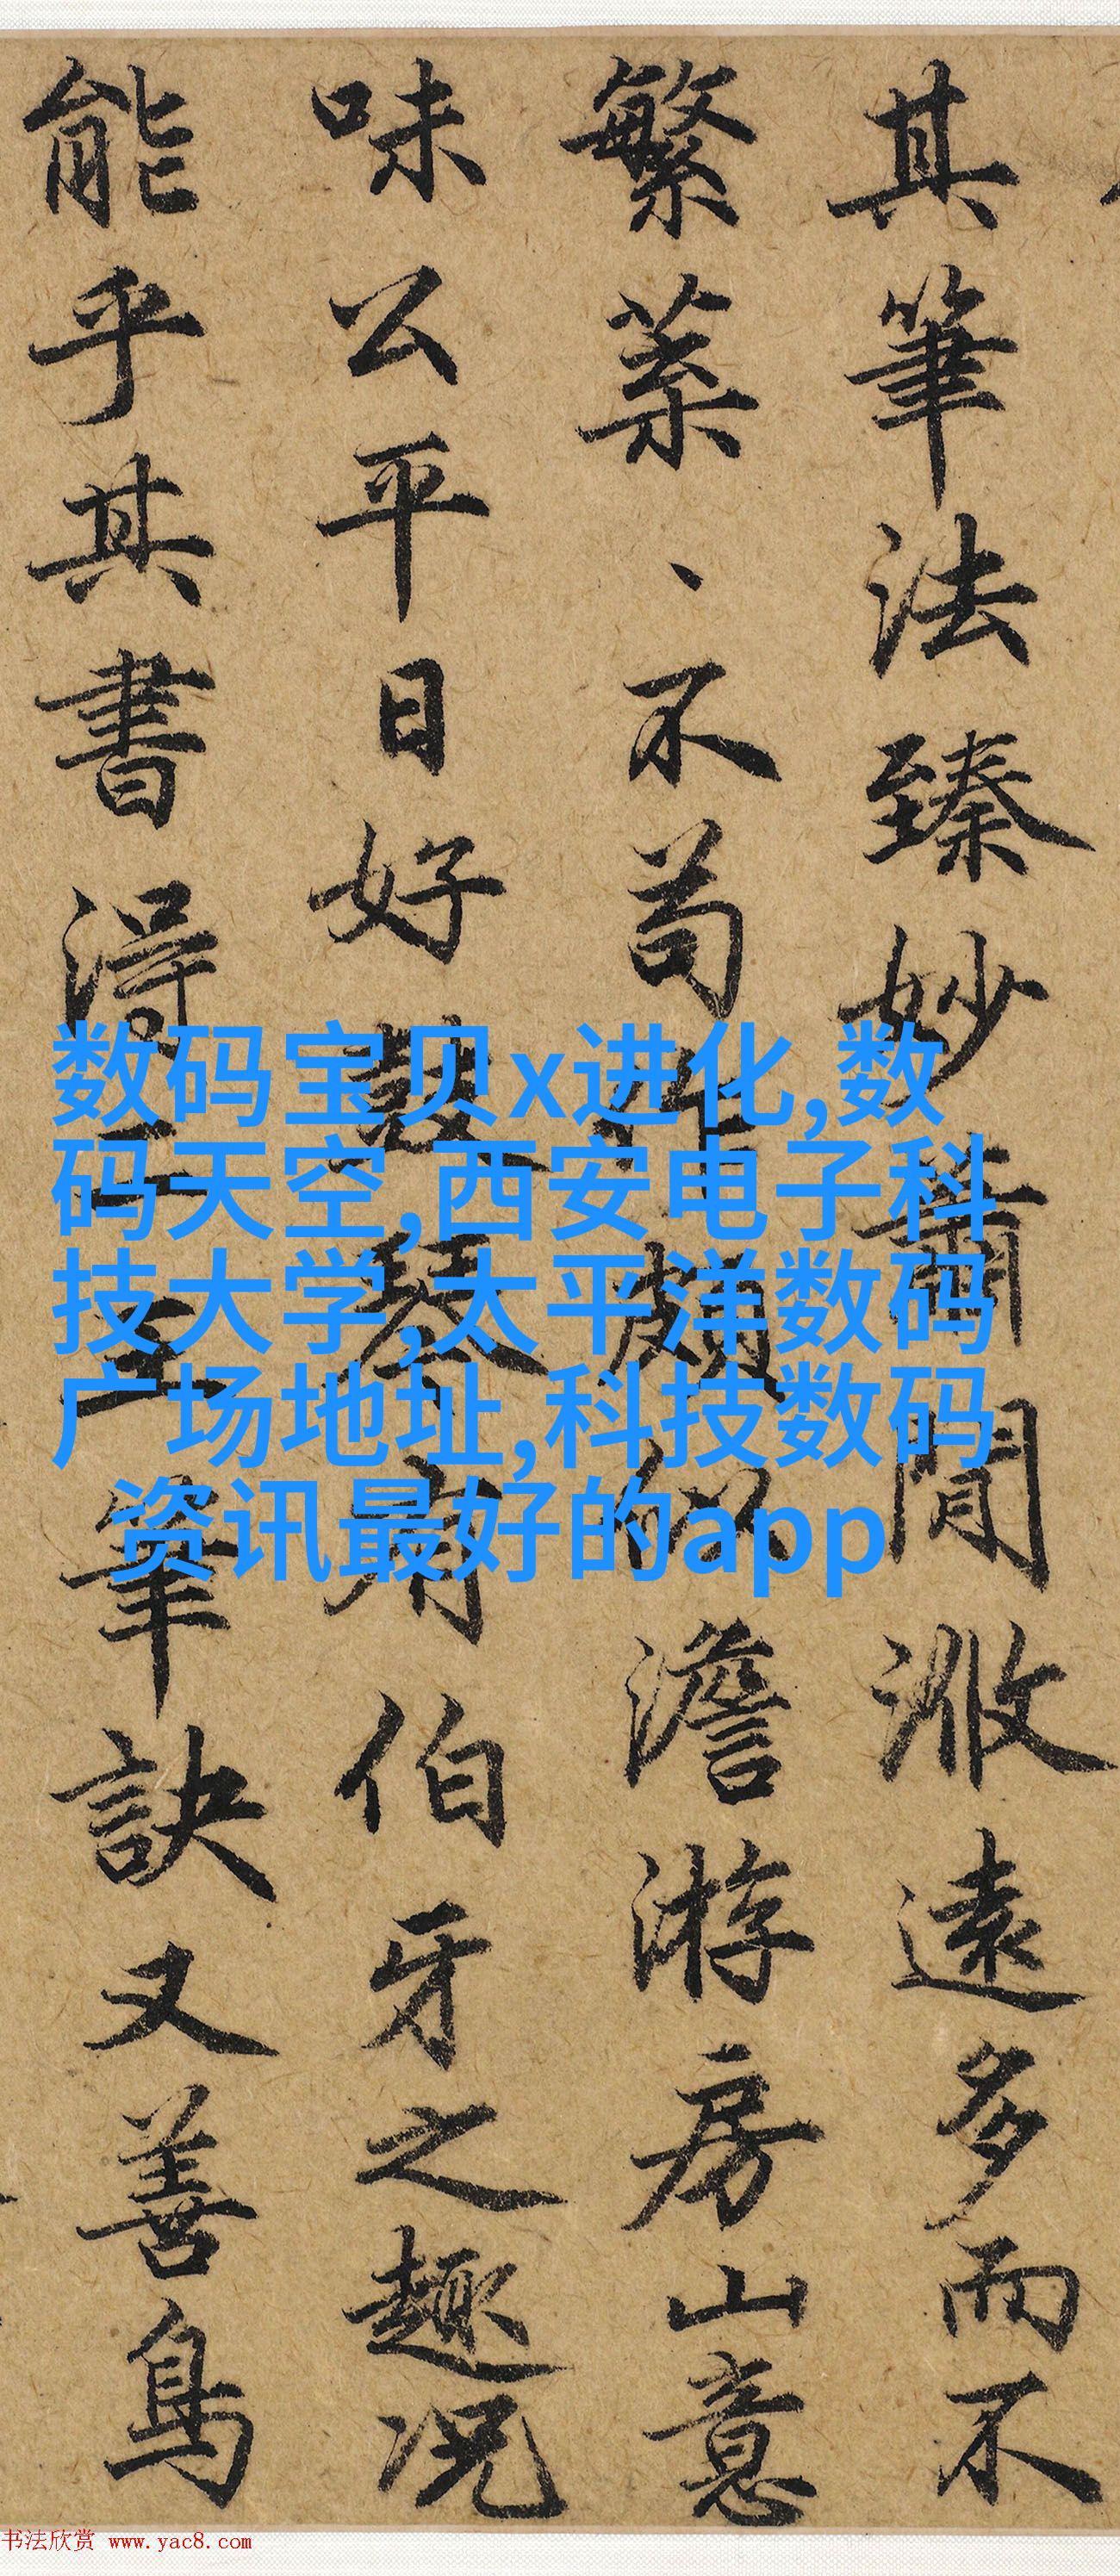 其筆法臻妙蕭閒淡遠多而不
繁菜、不苟作頗似澹游房山意
味公平日好鼓琴有伯牙之趣况
能乎其書得二王筆訣又善鳥
数码宝贝x进化,数
码天空,西安电子科
技大学,太平洋数码
广场地址,科技数码
资讯最好的app
书法欣赏 www.yac8.com